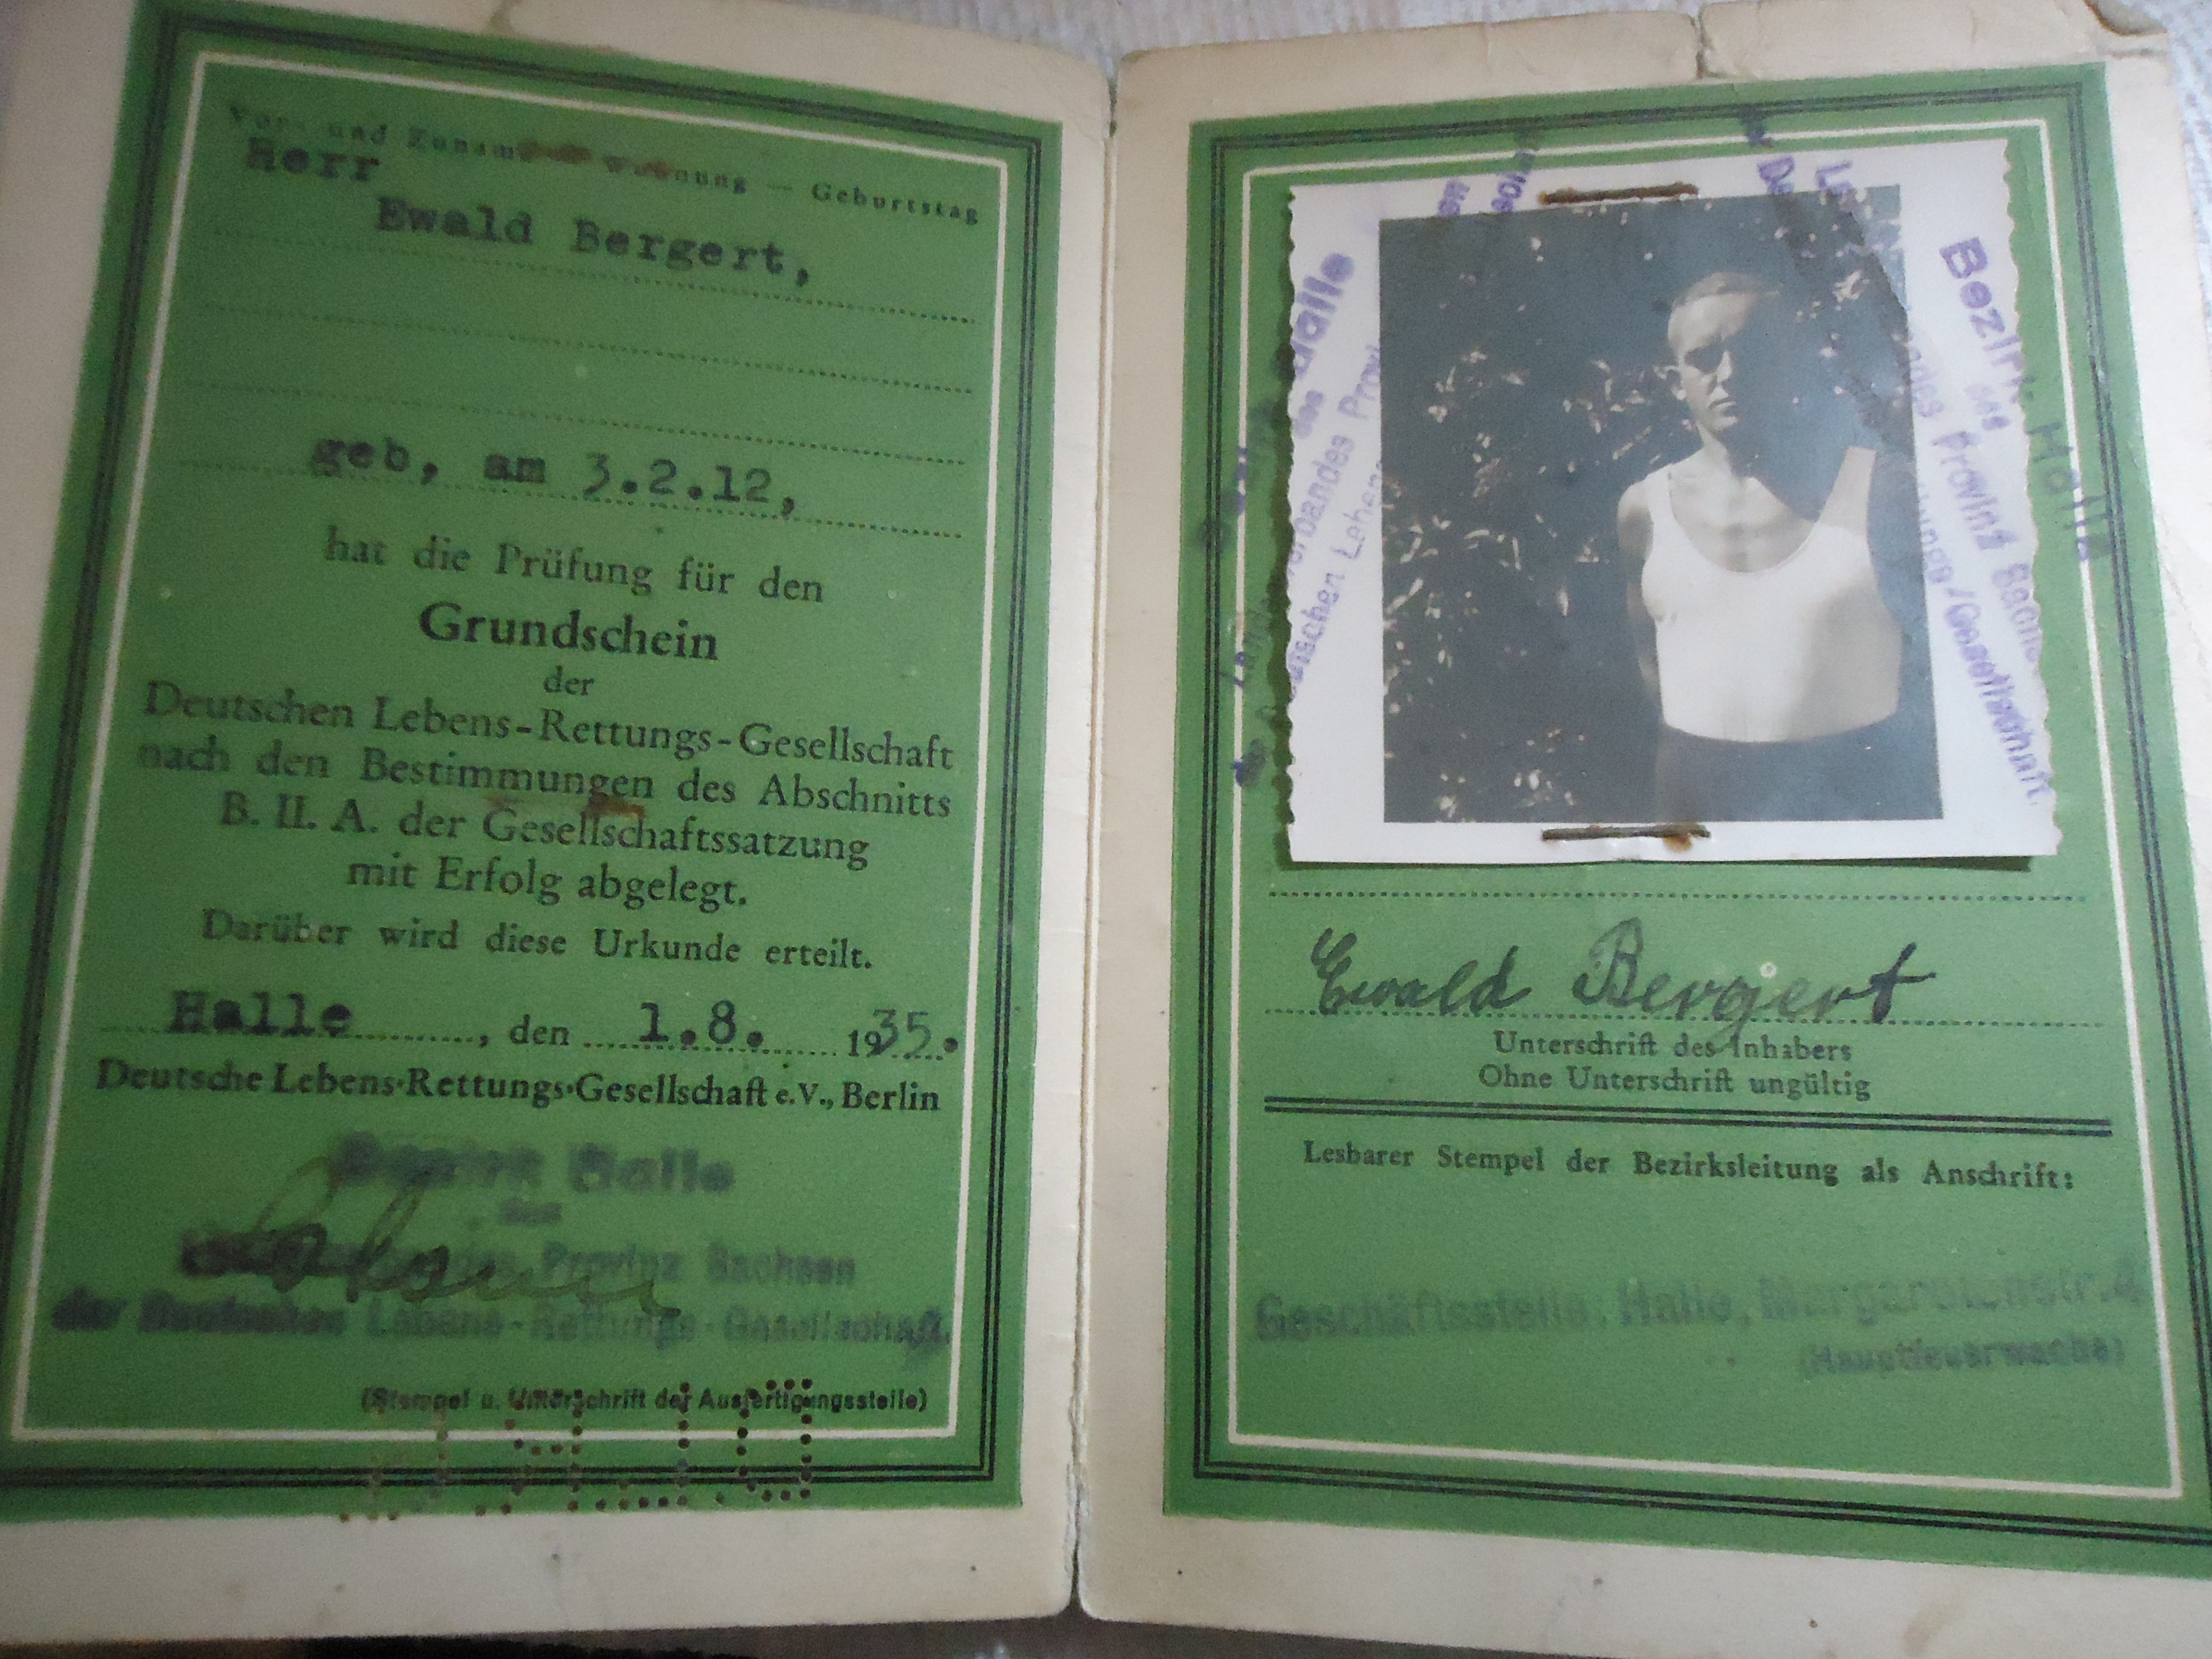 Vor- und Zuname — Wohnung — Geburtstag
Herr
Ewald Bergert,
geb, am 3.2.12,
hat die Prüfung für den
Grundschein
der
Deutschen Lebens-Rettungs-Gesellschaft
nach den Bestimmungen des Abschnitts
B. II. A. der Gesellschaftssatzung
mit Erfolg abgelegt.
Darüber wird diese Urkunde erteilt.
Halle, den 1.8. 1935.
Deutsche Lebens-Rettungs-Gesellschaft e.V., Berlin
Bezirk Halle
des
Provinz Sachsen
der Deutschen Lebens-Rettungs-Gesellschaft.
(Stempel u. Unterschrift der Ausfertigungsstelle)
Bezirk Halle
des
Provinz Sachsen
Ewald Bergert
Unterschrift des Inhabers
Ohne Unterschrift ungültig
Lesbarer Stempel der Bezirksleitung als Anschrift:
Geschäftsstelle: Halle, Margaretenstr. 4
(Hauptfeuerwache)